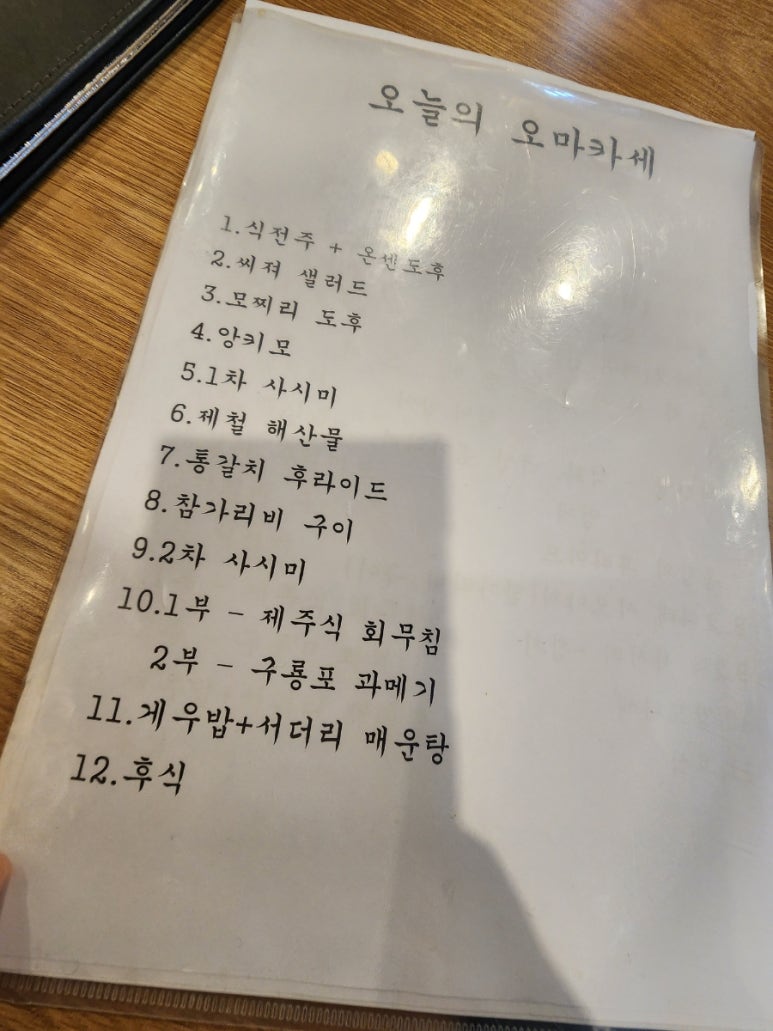 오늘의 오마카세
1.식전주 + 온센도후
2.씨져 샐러드
3.모찌리 도후
4.앙키모
5.1차 사시미
6.제철 해산물
7.통갈치 후라이드
8.참가리비 구이
9.2차 사시미
10.1부 - 제주식 회무침
2부 - 구룡포 과메기
11.게우밥+서더리 매운탕
12.후식